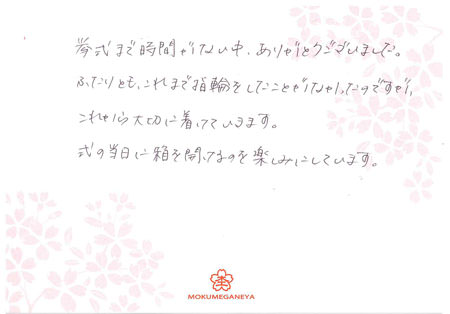 挙式まで時間がない中、ありがとうございました。
ふたりとも、これまで指輪をしたことがなかったのですが、
これから大切に着けていきます。
式の当日に箱を開けるのを楽しみにしています。
MOKUMEGANEYA